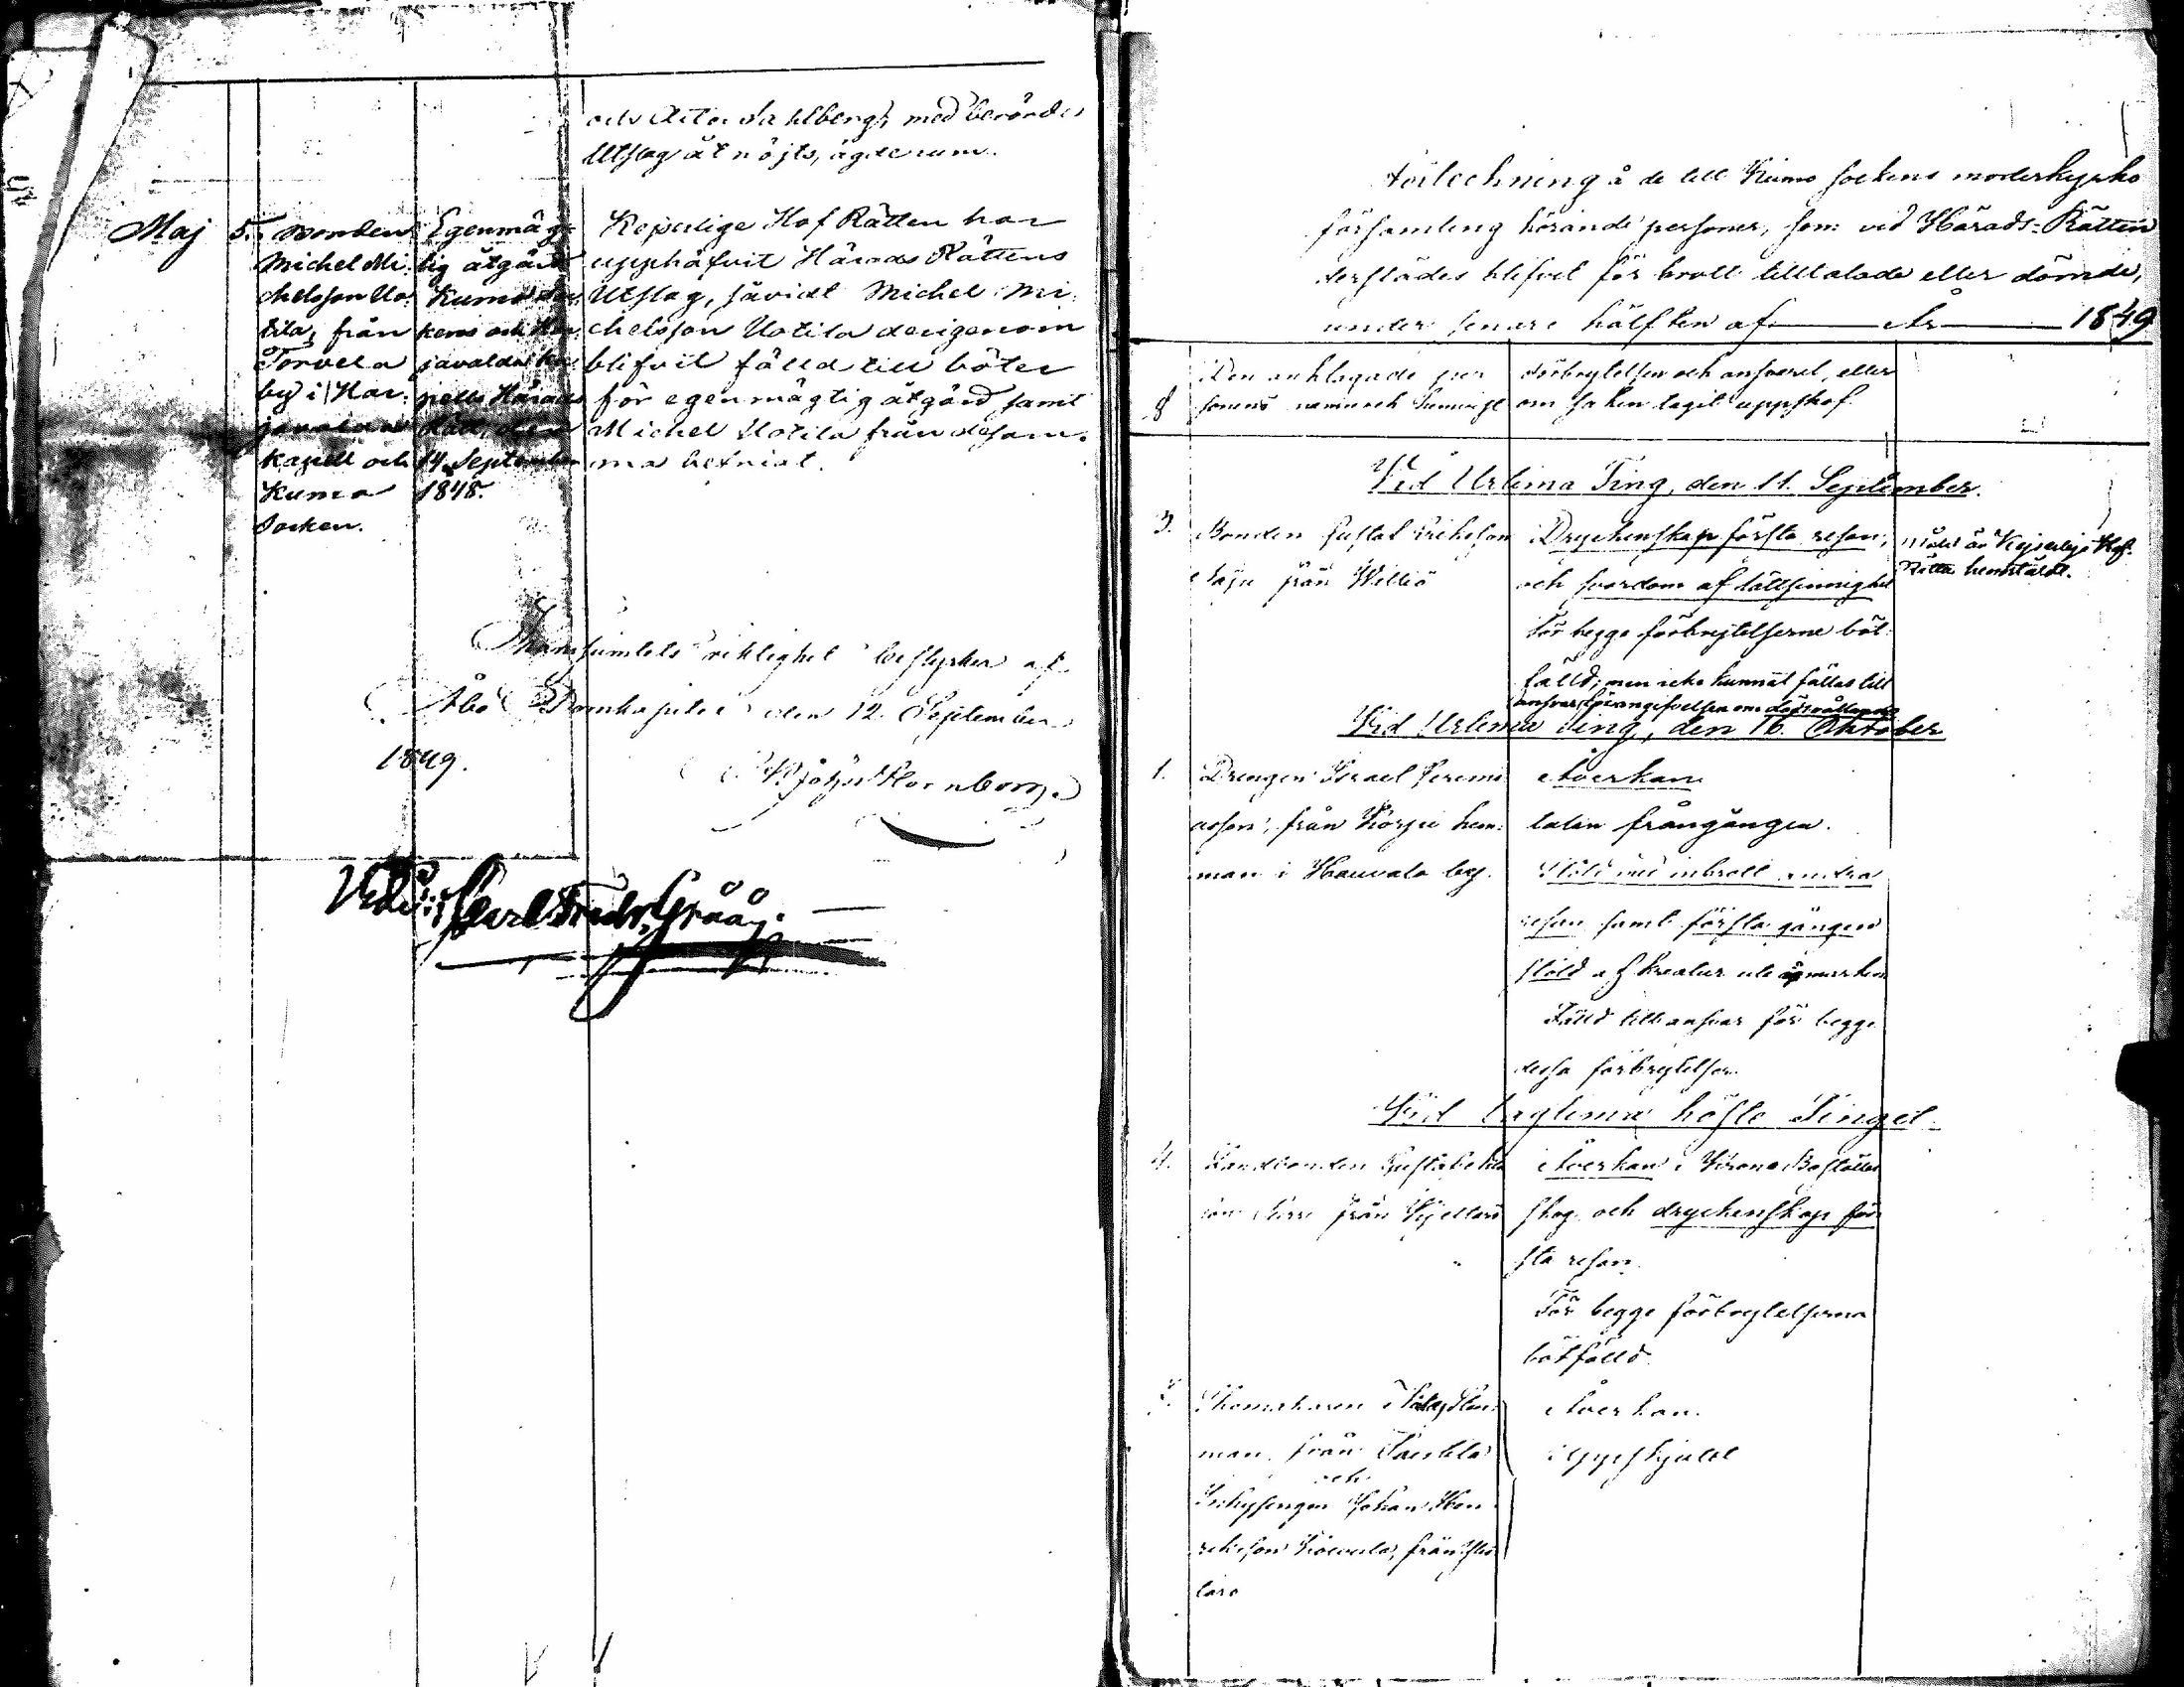 och Aitta Sahlberg, med berörde
Utslag åtnöjts, ägde rum.
Maj 5. Bonden
Michel Mi-
chelsson Uo-
tila, från
Torvela
by i Har-
javalda
Kapell och
Kumo
Socken.
Egenmäg-
tig åtgärd
Kumo Soc-
kens och Har-
javalda Ka-
pells Härads
Rätt, den
14 September
1848.
Kejserlige Hof Rätten har
upphäfvit Härads Rättens
Utslag, såvidt Michel Mi-
chelsson Uotila derigenom
blifvit fälld till böter
för egenmägtig åtgärd samt
Michel Uotila från desam-
ma befriat.
Transumtets riktighet bestyrker af
Åbo Domkapitel den 12 September
1849.
Carl Fredr. Gråå
Förteckning å de till Kumo sockens moderkyrko
församling hörande personer, som vid Härads-Rätten
derstädes blifvit för brott tilltalade eller dömde,
under senare hälften af år 1849
§
Den anklagade per
sonens namn och hemvist
Förbrytelsen och ansvaret, eller
om saken tagit uppskof
Vid Urtima Ting, den 11. September.
3. Bonden Gustaf Eriksson
från Wittiö
Dryckenskap första resan,
och svordom af lättsinnighet
För begge förbrytelserne böt-
fälld; men icke kunnat fällas till
ansvar för angifvelsen om dödsvållande
Målet är Kejserliga Hof-
Rätten hemstäldt.
Vid Urtima Ting, den 16. Oktober
1. Drengen Israel Jeremi
asson, från Korpi hem-
man i Hauvala by.
Åverkan
talan frångången.
Stöld med inbrott andra
resan samt första gången
stöld af kreatur ute å marken
Fälld till ansvar för begge
dessa förbrytelser.
Vid Lagtima höste Tinget.
4. Landbonden Gustaf
från Kjettarö
Åverkan i Krono Boställes
skog och dryckenskap för
sta resan.
För begge förbrytelserna
bötfälld
5. Skomakaren
man från
och
Inhysingen Johan Hen
riksson från
Åverkan.
Uppskjutet